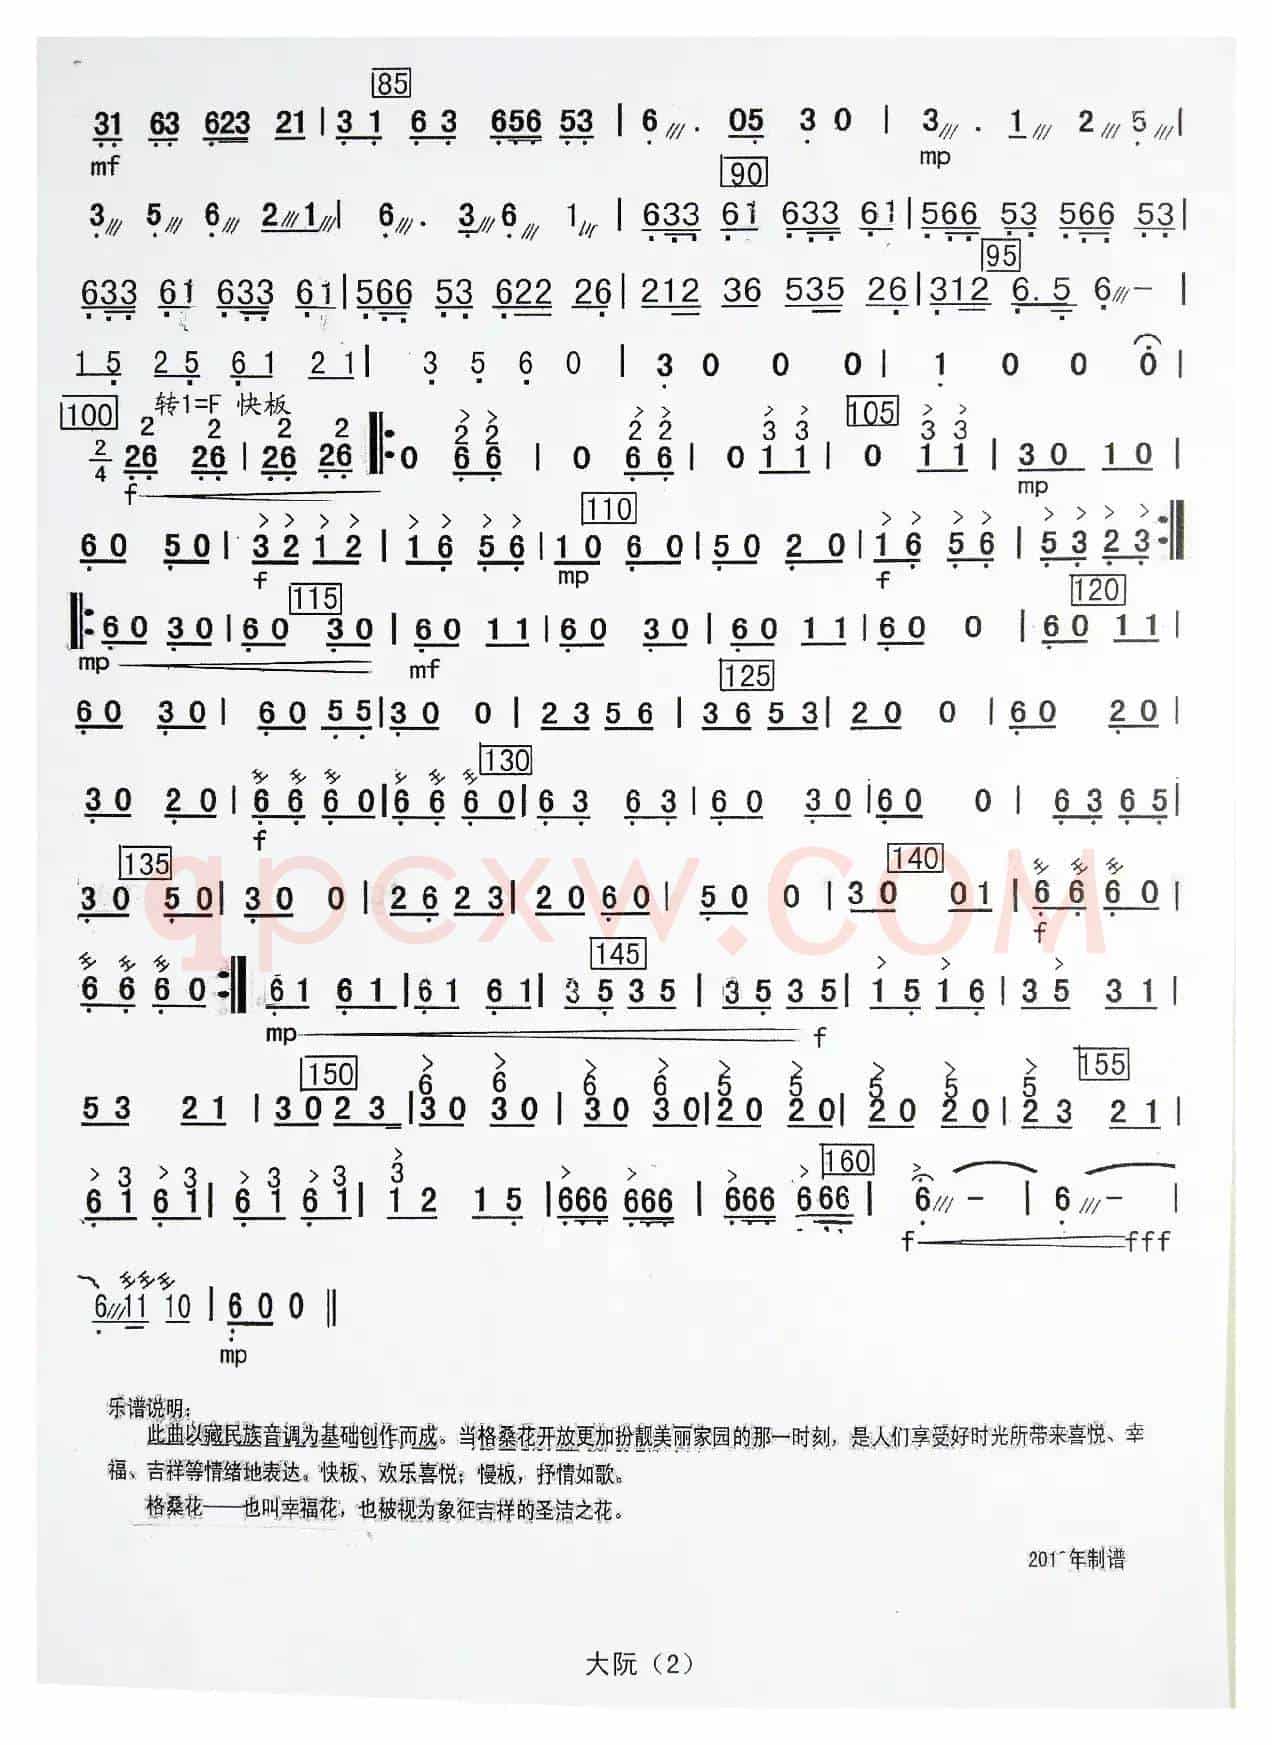 85
31 63 623 21 | 3 1 6 3 656 53 | 6 /// . 05 3 0 | 3 /// . 1 /// 2 /// 5 /// |
mf mp
90
3 /// 5 /// 6 /// 2 /// 1 /// | 6 /// . 3 /// 6 /// 1 | 633 61 633 61 | 566 53 566 53 |
95
633 61 633 61 | 566 53 622 26 | 212 36 535 26 | 312 6.5 6 /// – |
1 5 2 5 6 1 2 1 | 3 5 6 0 | 3 0 0 0 | 1 0 0 0 |
100 转1=F 快板 105
2 2 2 2 > > > > > > > >
2 2 2 2 3 3 3 3
2/4 26 26 | 26 26 |: 0 6 6 | 0 6 6 | 0 1 1 | 0 1 1 | 3 0 1 0 |
f mp
110
> > > > > > > > > > > > > >
6 0 5 0 | 3 2 1 2 | 1 6 5 6 | 1 0 6 0 | 5 0 2 0 | 1 6 5 6 | 5 3 2 3 :|
f mp f
115 120
|: 6 0 3 0 | 6 0 3 0 | 6 0 1 1 | 6 0 3 0 | 6 0 1 1 | 6 0 0 | 6 0 1 1 |
mp mf
125
6 0 3 0 | 6 0 5 5 | 3 0 0 | 2 3 5 6 | 3 6 5 3 | 2 0 0 | 6 0 2 0 |
130
3 0 2 0 | 6 6 6 0 | 6 6 6 0 | 6 3 6 3 | 6 0 3 0 | 6 0 0 | 6 3 6 5 |
f
135 140
3 0 5 0 | 3 0 0 | 2 6 2 3 | 2 0 6 0 | 5 0 0 | 3 0 0 1 | 6 6 6 0 |
f
qpcxw.COM
145
> > >
6 6 6 0 :| 6 1 6 1 | 6 1 6 1 | 3 5 3 5 | 3 5 3 5 | 1 5 1 6 | 3 5 3 1 |
mp f
150 155
> > > > > > > > >
6 6 6 6 5 5 5 5 5
5 3 2 1 | 3 0 2 3 | 3 0 3 0 | 3 0 3 0 | 2 0 2 0 | 2 0 2 0 | 2 3 2 1 |
160
> 3 > 3 > 3 > 3 > 3 > > > > >
6 1 6 1 | 6 1 6 1 | 1 2 1 5 | 666 666 | 666 666 | 6 /// – | 6 /// – |
f fff
6 /// 11 10 | 6 0 0 ‖
mp
乐谱说明:
此曲以藏民族音调为基础创作而成。当格桑花开放更加扮靓美丽家园的那一时刻，是人们享受好时光所带来喜悦、幸
福、吉祥等情绪地表达。快板、欢乐喜悦；慢板，抒情如歌。
格桑花——也叫幸福花，也被视为象征吉祥的圣洁之花。
年制谱
大阮（2）